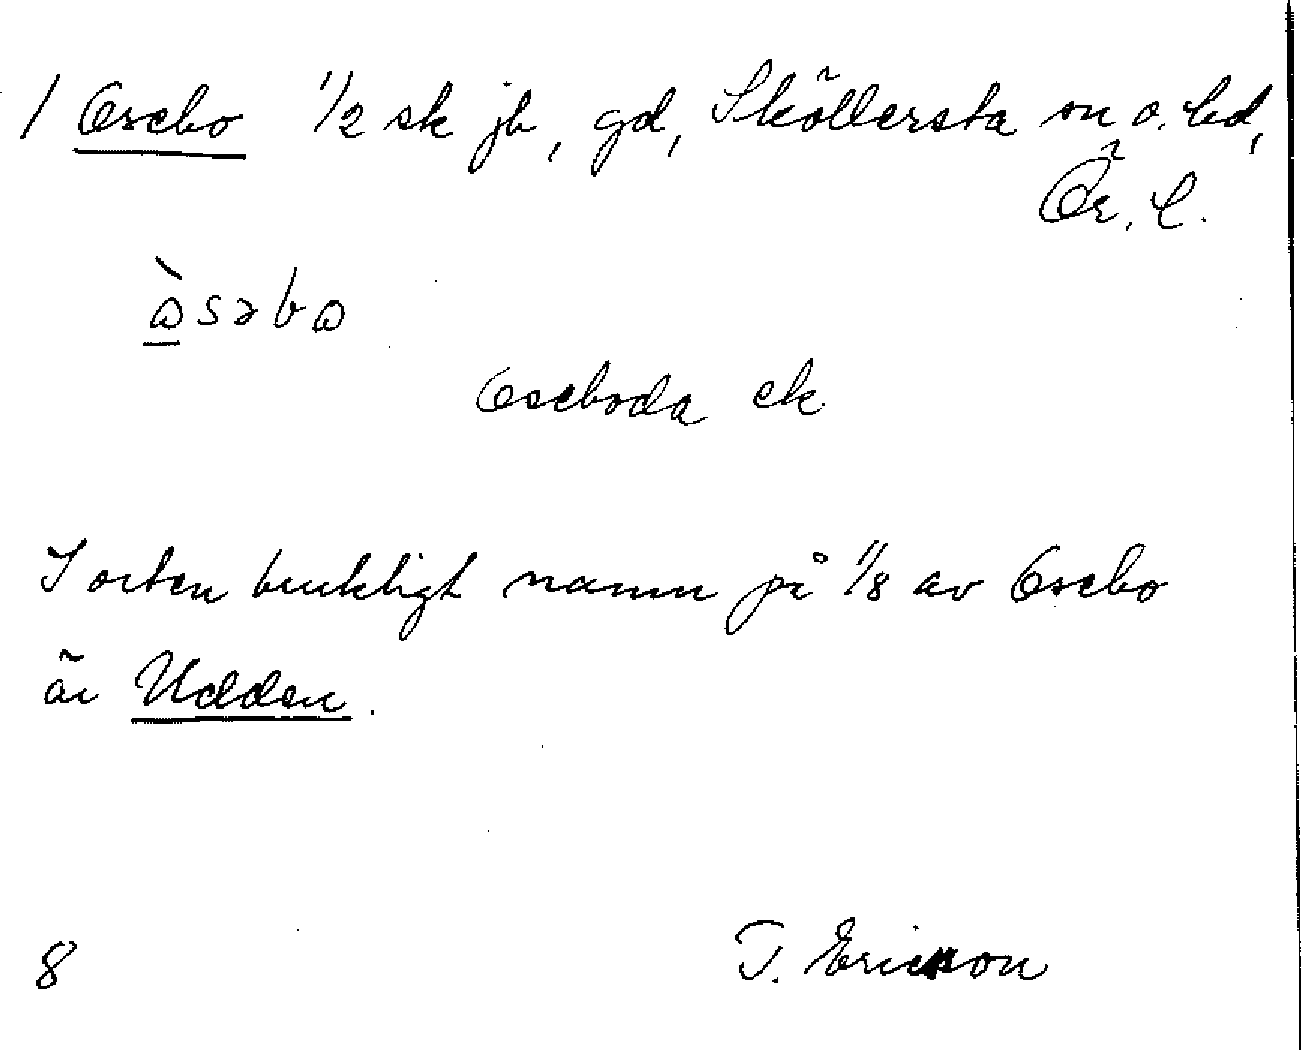 1 Osebo 1/2 sk jb, gd, Sköllersta sn o. hd,
Ör. l.
ò̱səbo
Oseboda ek
I orten brukligt namn på 1/8 av Osebo
är Udden.
8 T. Ericsson